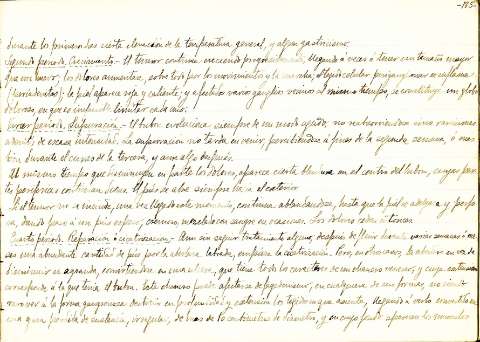 -115-
durante los primeros días cierta elevación de la temperatura general, y algún gastricismo.
Segundo período, Crecimiento.- El tumor continúa creciendo progresivamente, llegando a veces a tener un tamaño mayor
que un huevo; los dolores aumentan, sobre todo por los movimientos y la marcha; el tejido celular periganglionar se inflama
; la piel aparece roja y caliente; y afectados varios ganglios vecinos al mismo tiempo, se constituye un globo
doloroso, en que es imposible limitar cada uno.
Tercer período, Supuración.- El bubón evoluciona siempre de un modo agudo, no
de escasa intensidad. La supuración no tarda en venir, percibiéndose a fines de la segunda semana, o más
bien durante el curso de la tercera, y aun algo después.
Al mismo tiempo que disminuyen en parte los dolores, aparece cierta blandura en el centro del bubón, cuyas par-
tes periféricas continúan duras. El pus se abre siempre hacia el exterior.
Si el tumor no se incide, una vez llegado este momento, continúa ablandándose, hasta que la piel se adelgaza y perfo-
ra, dando paso a un pus espeso, cremoso, mezclado con sangre en ocasiones. Los dolores ceden entonces.
Cuarto período. Reparación o cicatrización.- Aun sin seguir tratamiento alguno, después de fluir durante varias semanas o me-
ses una abundante cantidad de pus por la abertura labrada, empieza la cicatrización. Pero, en otros casos, la abertura en vez de
disminuir se agranda, convirtiéndose en una úlcera, que tiene todos los caracteres de un chancro venéreo, y cuya extensión
corresponde a la que tenía el bubón. Este chancro puede afectar de fagedenismo, en cualquiera de sus formas, no siendo
raro ver a la forma gangrenosa destruir en profundidad y extensión los tejidos en que asienta, llegando a verlo convertido en
una gran pérdida de sustancia, irregular, de más de 10 centímetros de diámetro, y en cuyo fondo aparecen los músculos